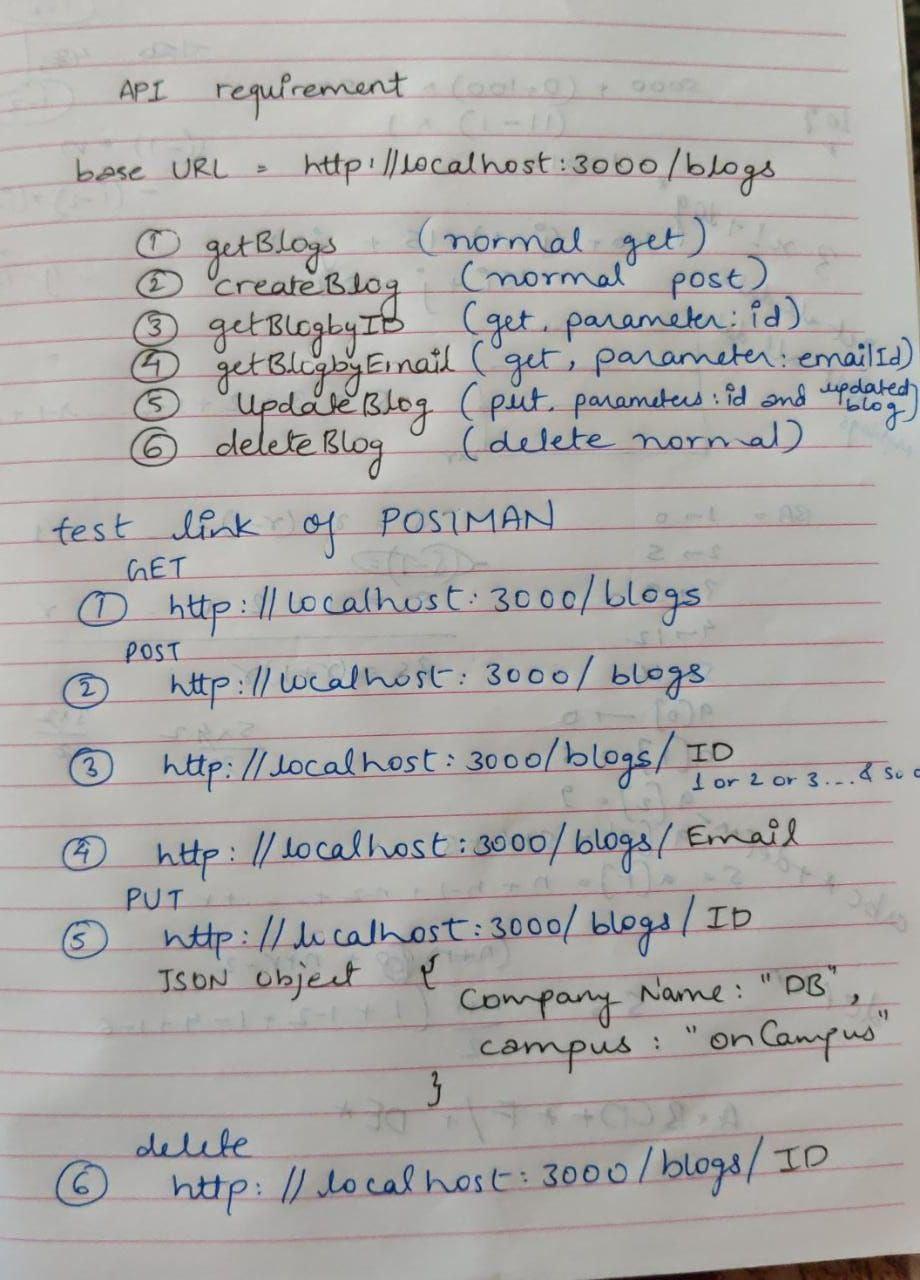 API requirement
base URL = http://localhost:3000/blogs
① getBlogs (normal get)
② createBlog (normal post)
③ getBlogbyID (get, parameter: id)
④ getBlogbyEmail (get, parameter: emailId)
⑤ UpdateBlog (put, parameters: id and updated blog)
⑥ deleteBlog (delete normal)
test link of POSTMAN
GET
① http://localhost:3000/blogs
POST
② http://localhost:3000/blogs
③ http://localhost:3000/blogs/ID
1 or 2 or 3...& so
④ http://localhost:3000/blogs/Email
PUT
⑤ http://localhost:3000/blogs/ID
JSON object {
Company Name: "DB",
campus: "onCampus"
}
delete
⑥ http://localhost:3000/blogs/ID